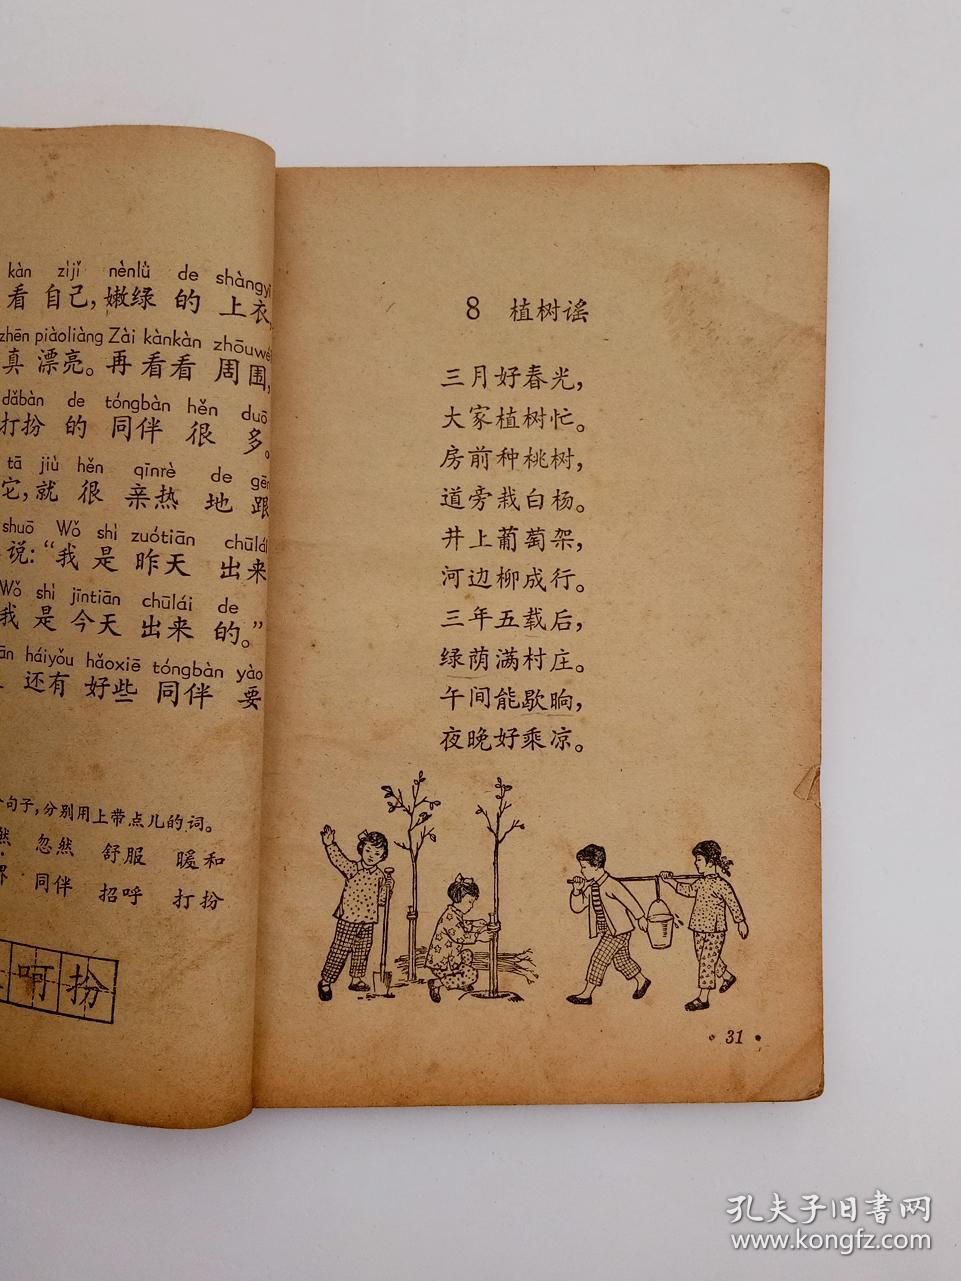 kàn zìjǐ nènlǜ de shàngyī
看 自己，嫩绿 的 上衣，
zhēn piàoliàng Zài kànkàn zhōuwéi
真 漂亮。再 看看 周围，
dǎbàn de tóngbàn hěn duō
打扮 的 同伴 很 多。
tā jiù hěn qīnrè de gēn
它，就 很 亲热 地 跟
shuō Wǒ shì zuótiān chūlái
说：“我 是 昨天 出来
Wǒ shì jīntiān chūlái de
我 是 今天 出来 的。”
háiyǒu hǎoxiē tóngbàn yào
还有 好些 同伴 要
句子，分别用上带点儿的词。
然 忽然 舒服 暖和
界 同伴 招呼 打扮
呵 扮
8 植树谣
三月好春光，
大家植树忙。
房前种桃树，
道旁栽白杨。
井上葡萄架，
河边柳成行。
三年五载后，
绿荫满村庄。
午间能歇晌，
夜晚好乘凉。
· 31 ·
孔夫子旧书网
www.kongfz.com